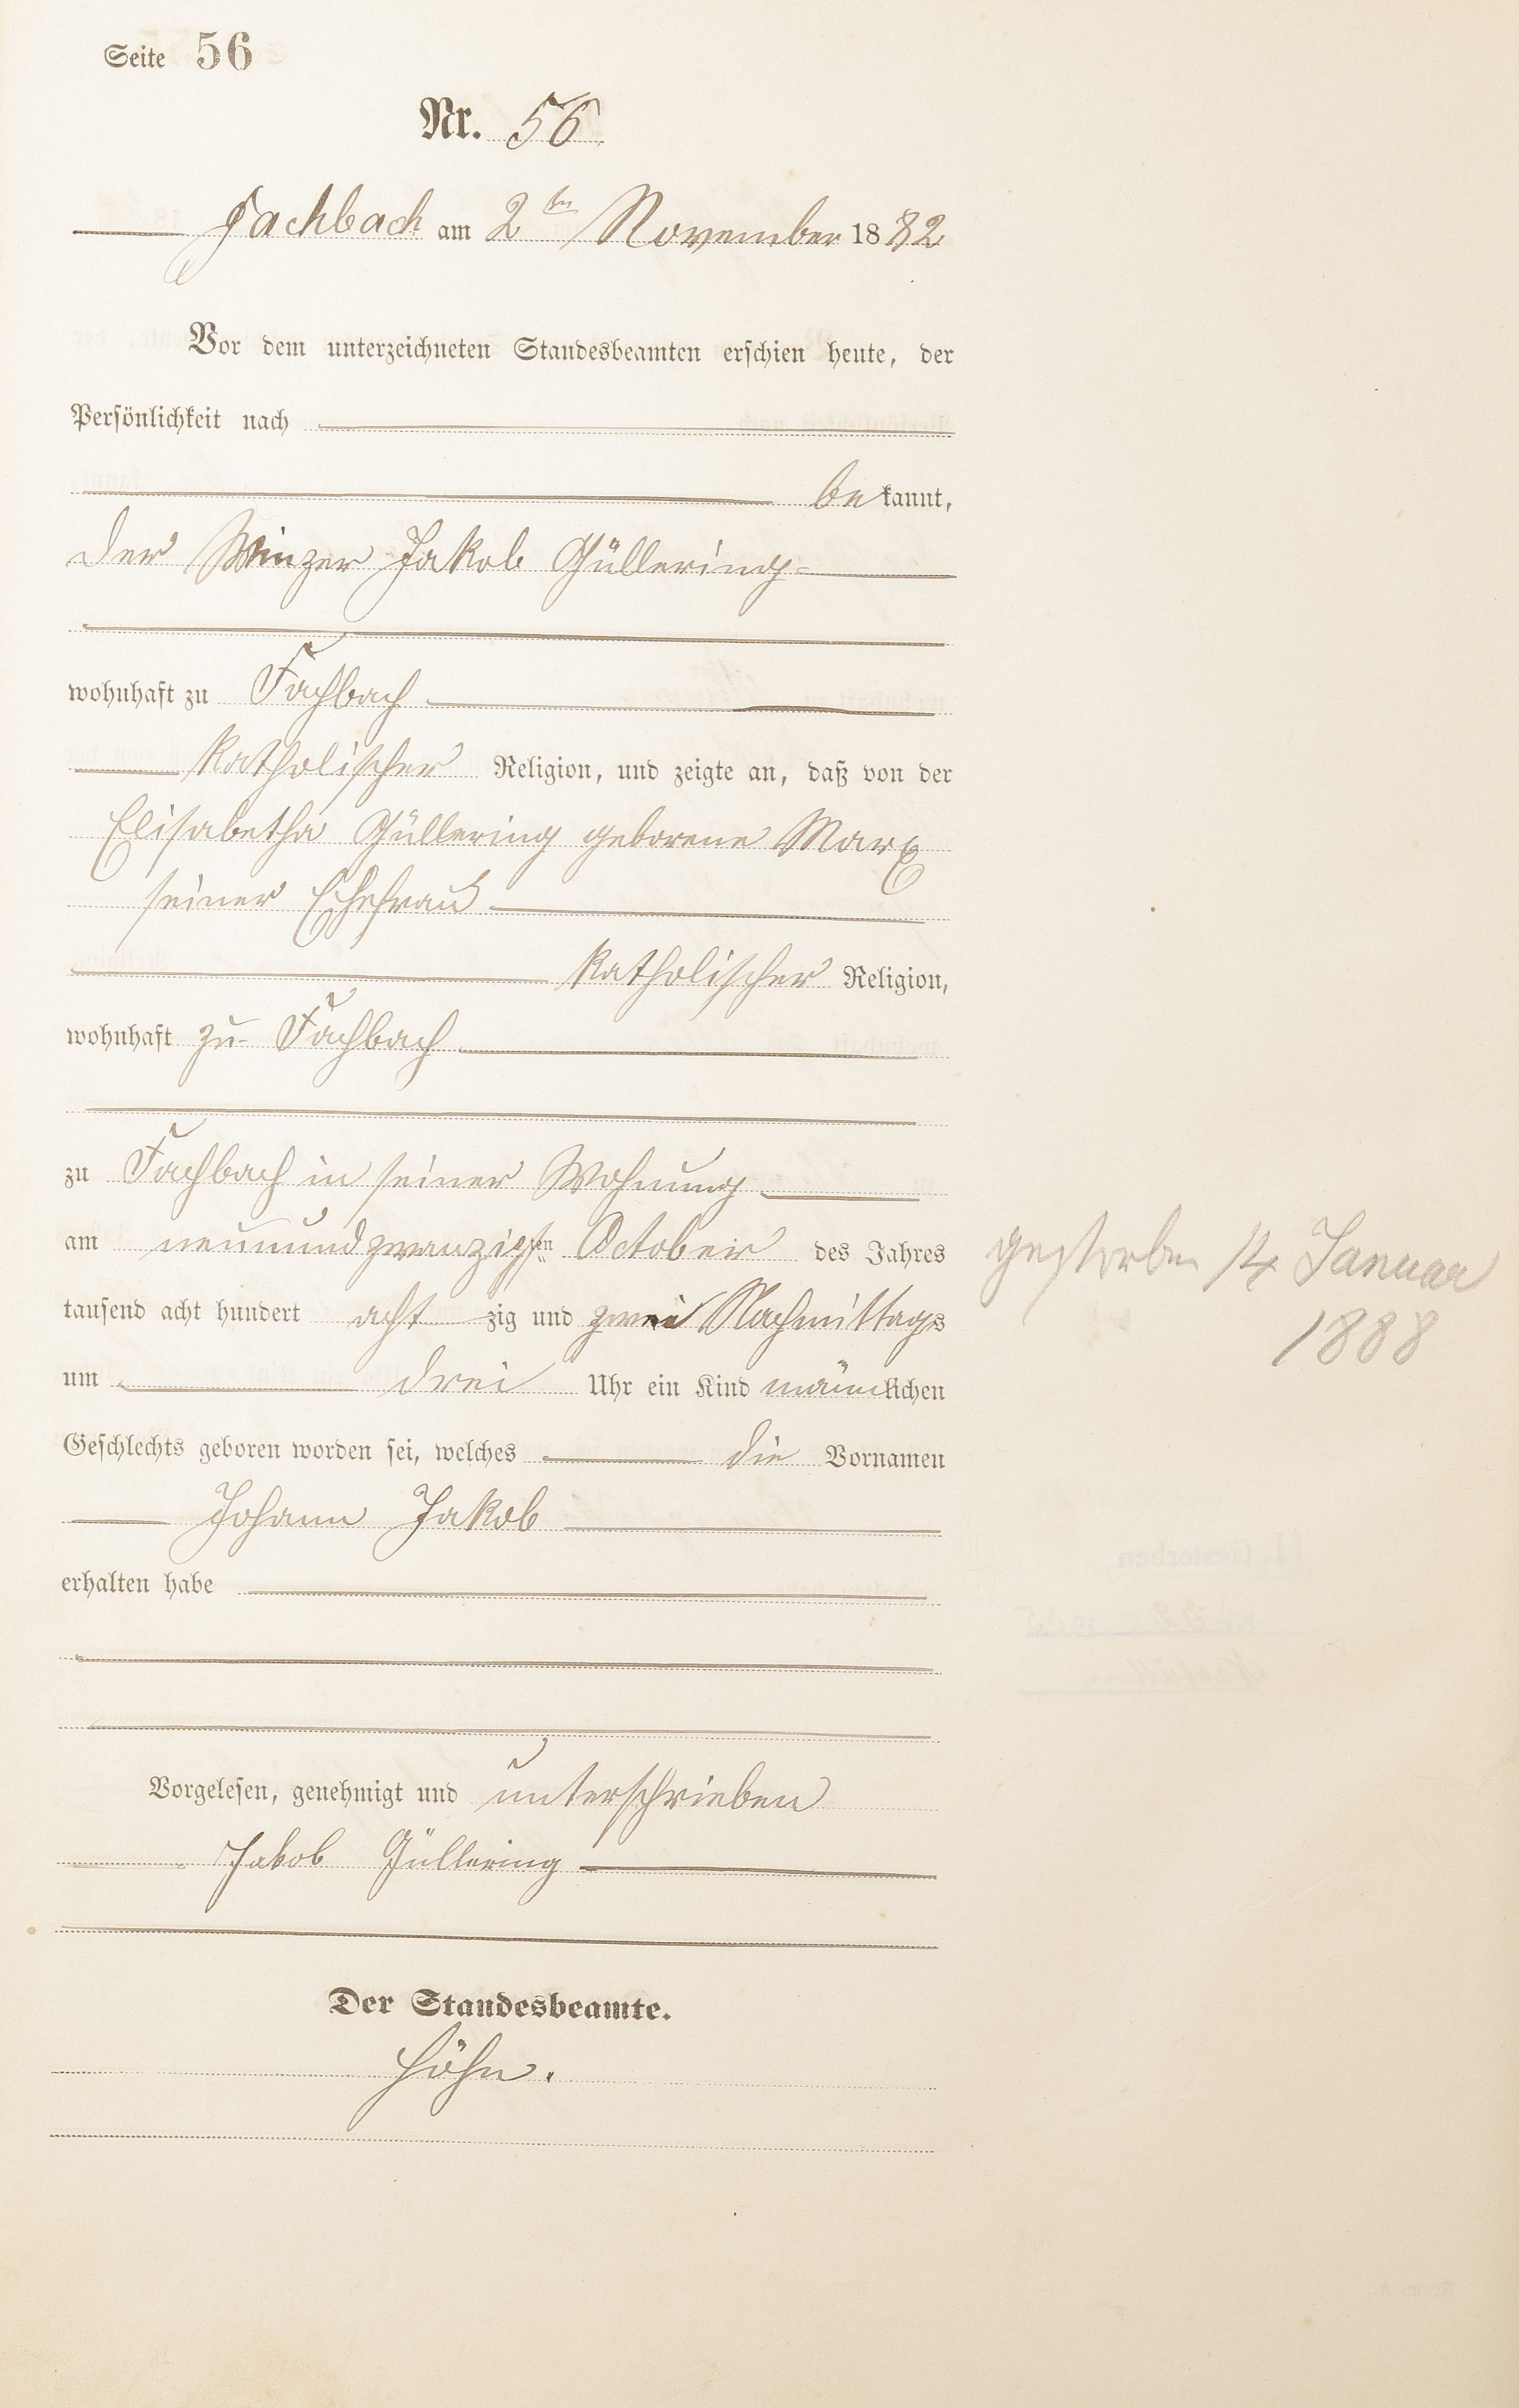 Seite 56
Nr. 56
Fachbach am 2ten November 1882
Vor dem unterzeichneten Standesbeamten erschien heute, der
Persönlichkeit nach
bekannt,
der Winzer Jakob Güllering
wohnhaft zu Fachbach
katholischer Religion, und zeigte an, daß von der
Elisabetha Güllering geborene Marx
seiner Ehefrau
katholischer Religion,
wohnhaft zu Fachbach
zu Fachbach in seiner Wohnung
am neunundzwanzigsten October des Jahres
tausend acht hundert achtzig und zwei Nachmittags
um drei Uhr ein Kind männlichen
Geschlechts geboren worden sei, welches die Vornamen
Johann Jakob
erhalten habe
gestorben 14 Januar
1888
Vorgelesen, genehmigt und unterschrieben
Jakob Güllering
Der Standesbeamte.
Höhn.